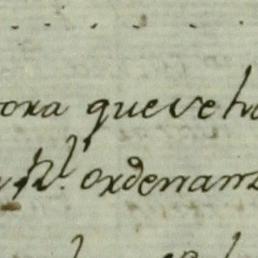 ora que ve ha
Rl. ordenanz